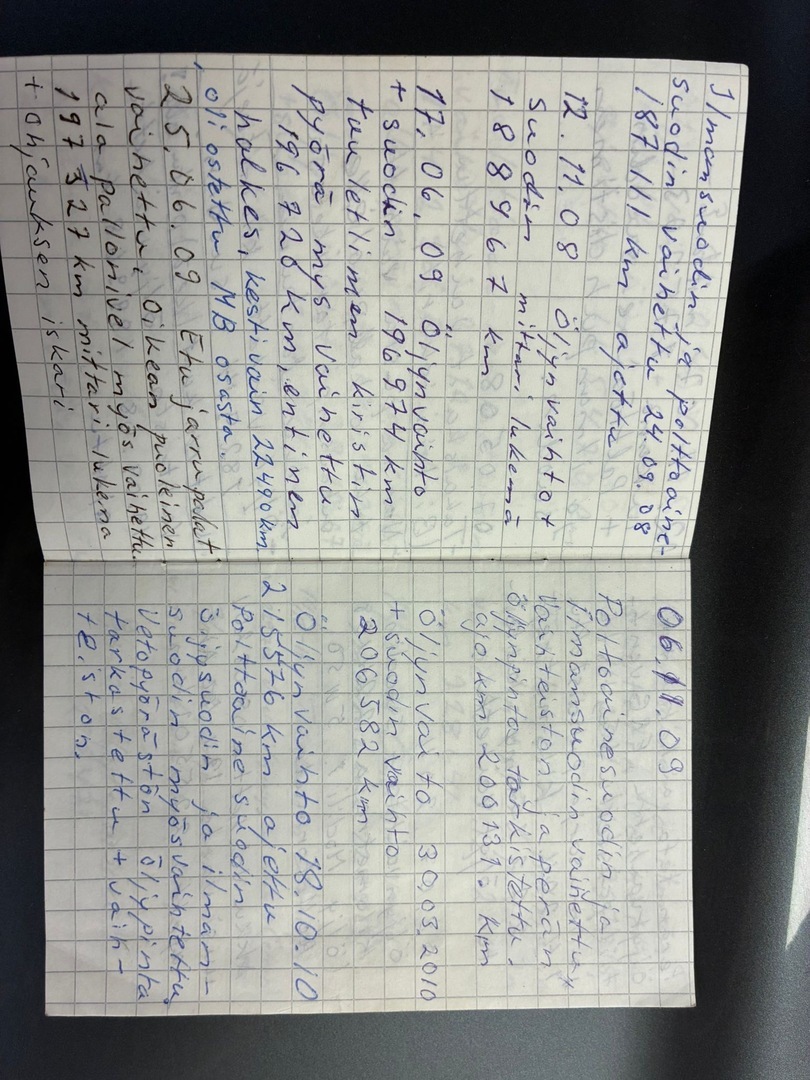 Ilmansuodin ja polttoaine-
suodin vaihettu 24.09.08
187111 km ajettu
12.11.08 Öljyn vaihtot
suodin mittari lukemā
188967 km
17.06.09 Öljynvaihto
+ suodin 196974 km
tuulettimen kiristin
pyörā mys vaihettu
196728 km, entinen
halkes, kesti vain 22490 km
oli ostettu MB osasta.
25.06.09 Etu jarrupalat
vaihettu, Oikean puoleinen
ala pallonivel myös vaihettu.
197327 km mittari-lukema
+ ohjauksen iskari
06.11.09
Poltoainesuodin ja
ilmansuodin vaihettu,
Vaihteiston ja perän
öljynpinta tarkistettu.
ajo km 200131 km
Öljyn vaito 30.03.2010
+ suodin vaihto
206582 km
Öljyn vaihto 18.10.10
215576 km ajettu
Polttoaine suodin
öljysuodin ja ilman-
suodin myös vaihtettu,
Vetopyörästön öliypinta
tarkastettu + vaih-
teiston.